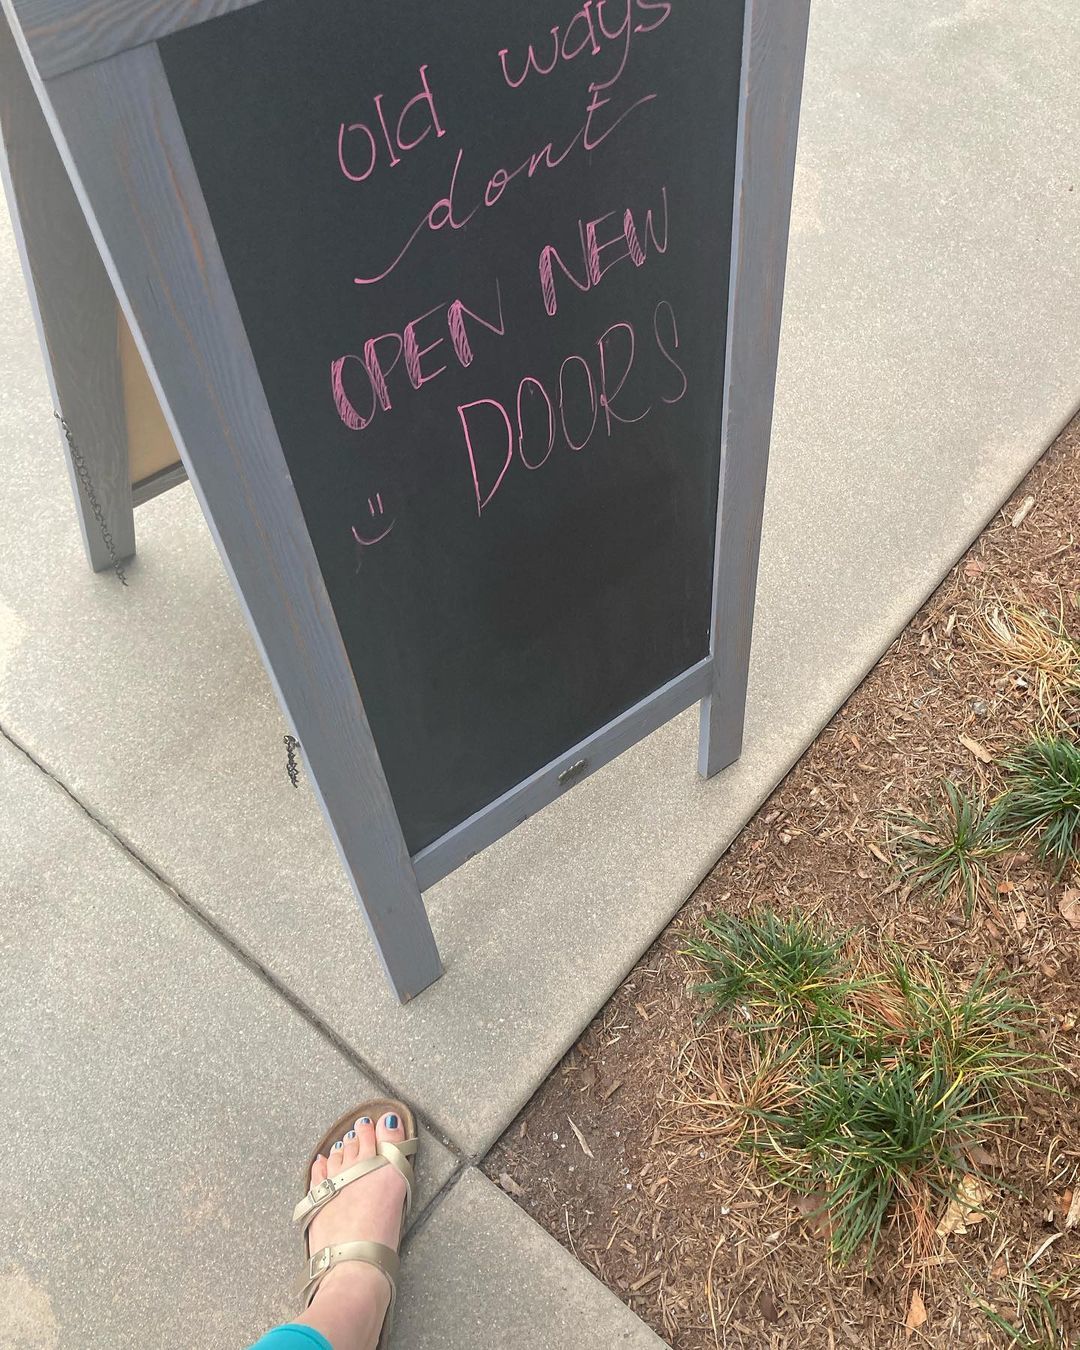 old ways
dont
OPEN NEW
DOORS